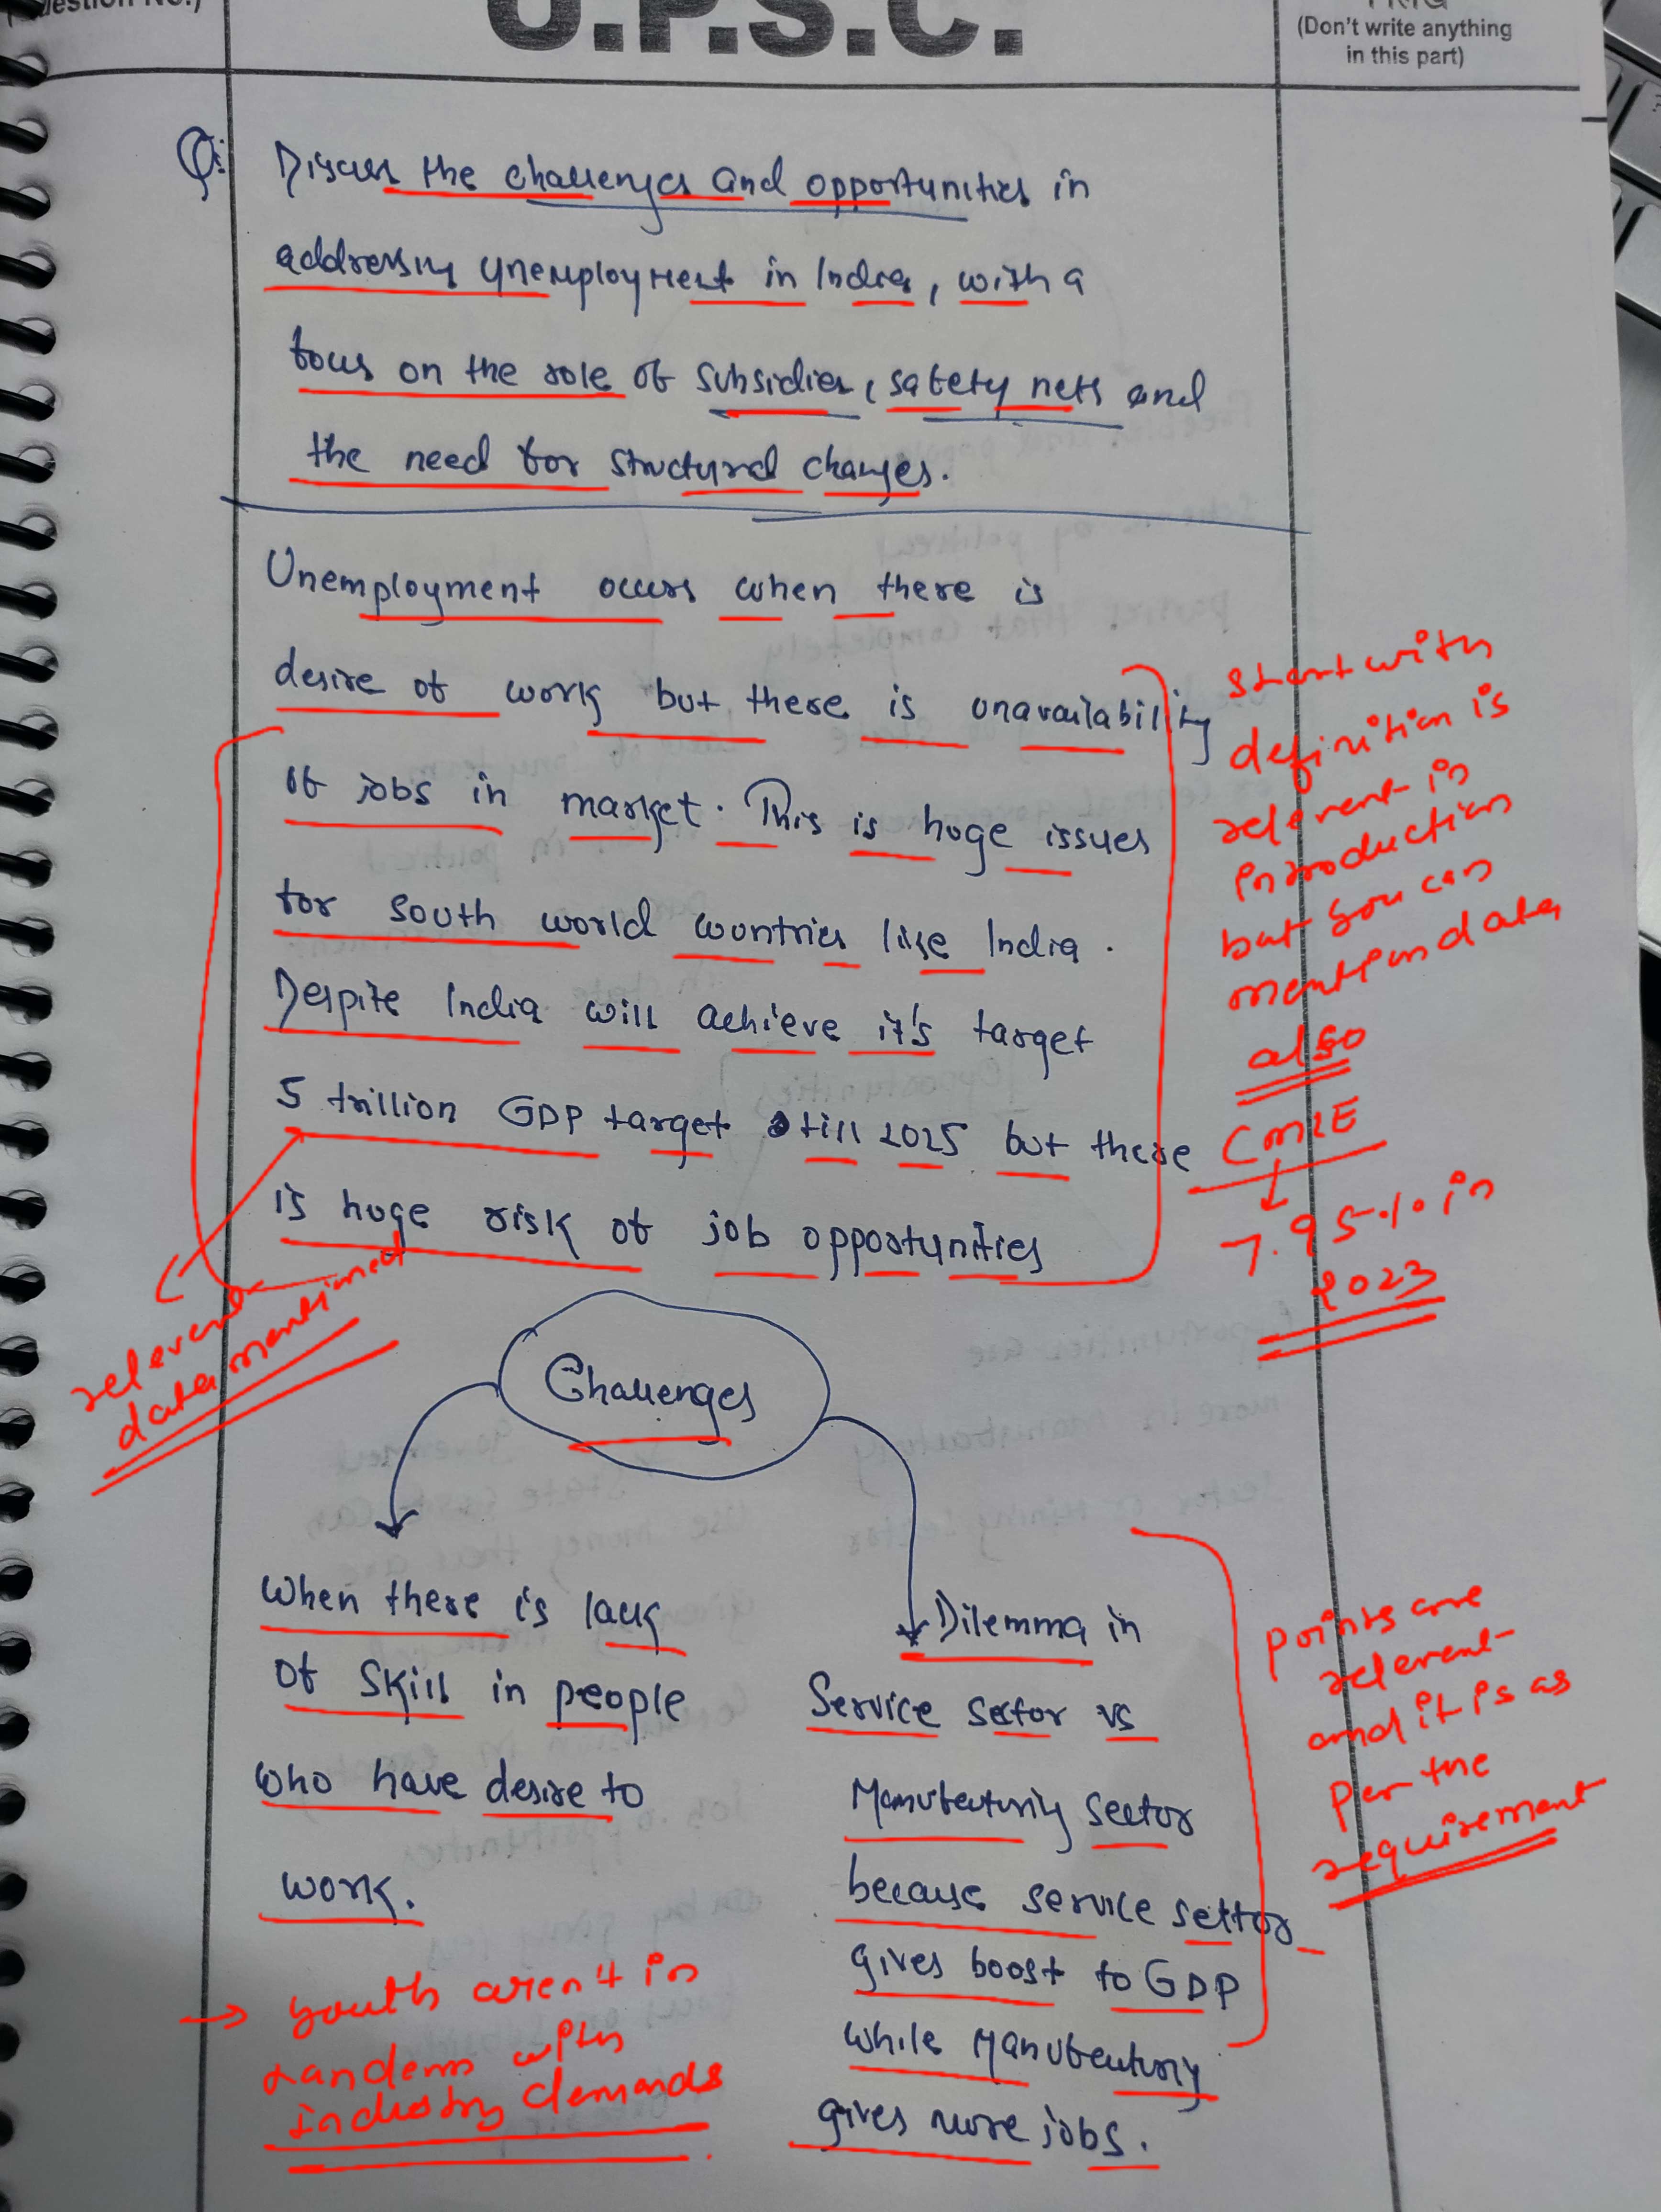 U.P.S.C.
(Don't write anything
in this part)
Q: Discuss the challenges and opportunities in
addressing unemployment in India, with a
focus on the role of subsidies, safety nets and
the need for structural changes.
Unemployment occurs when there is
desire of work but there is unavailability
of jobs in market. This is huge issues
for south world countries like India.
Despite India will achieve it's target
5 trillion GDP target till 2025 but there
is huge risk of job opportunities
start with
definition is
relevent in
introduction
but you can
mention data
also
CMIE
7.95% in
2023
relevent
data mentioned
Challenges
When there is lack
of skill in people
who have desire to
work.
→ youth aren't in
tandem with
industry demands
Dilemma in
Service sector vs
Manufacturing sector
because service sector
gives boost to GDP
while Manufacturing
gives more jobs.
points are
relevent
and it is as
per the
requirement